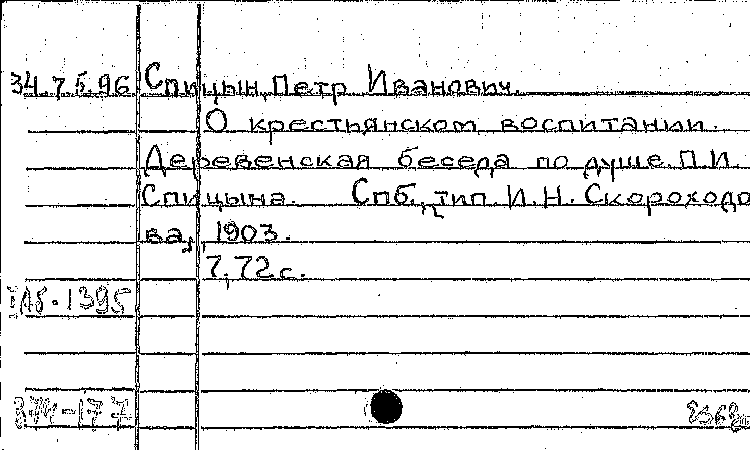 34.7.5.96 Спицын, Петр Иванович.
О крестьянском воспитании.
Деревенская беседа по душе П.И.
Спицына. Спб., тип. И.Н. Скороходо
ва, 1903.
7,72 с.